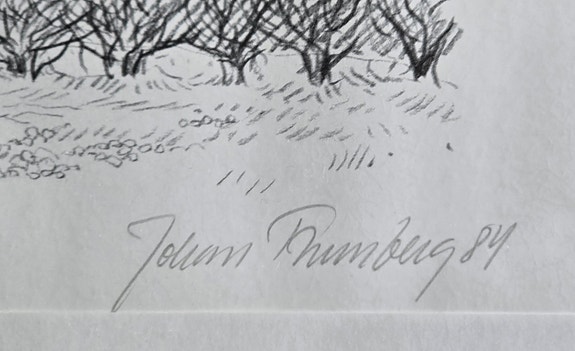 Johan Thunberg 84